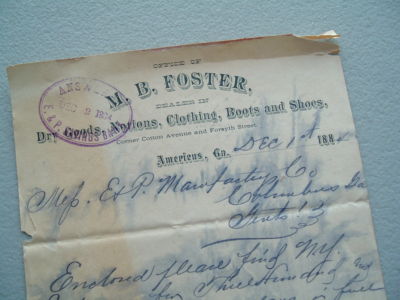 OFFICE OF
M. B. FOSTER,
DEALER IN
Dry Goods, Notions, Clothing, Boots and Shoes,
Corner Cotton Avenue and Forsyth Street.
Americus, Ga. Dec 1st 188
ANS
DEC 2
Mess. E & P. Manufactug Co
Columbus Ga
Gents:
Enclosed please find my